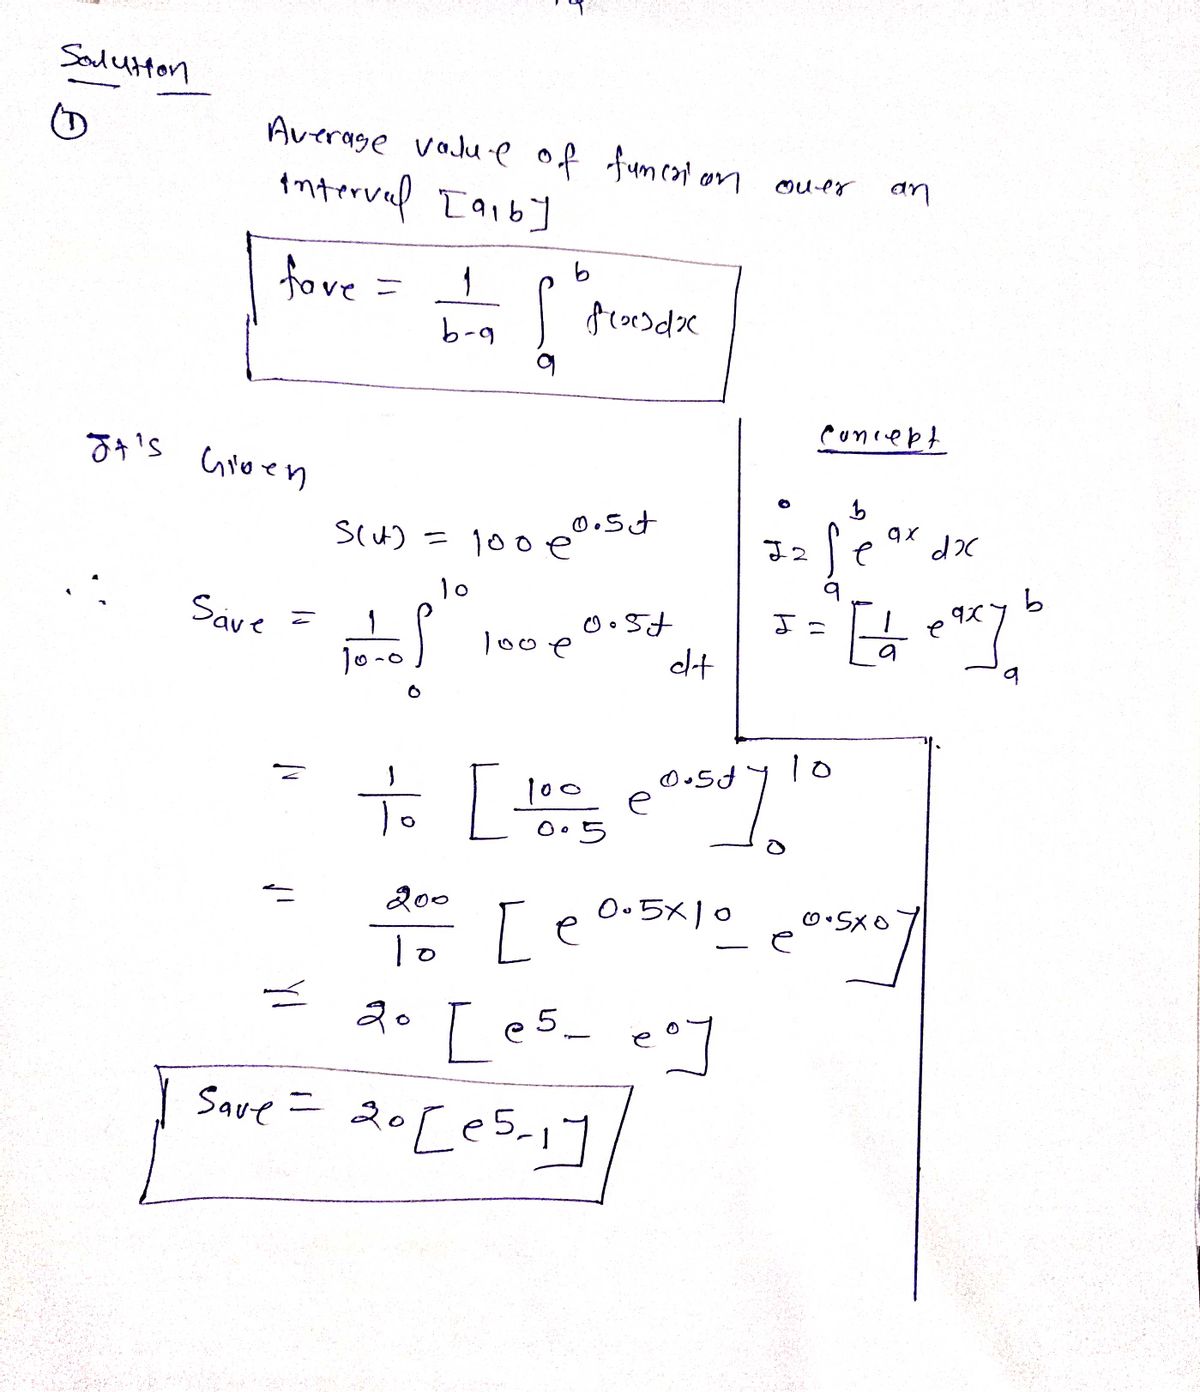 Solution
①
Average value of function over an
interval [a,b]
fave = 1/(b-a) ∫_a^b f(x)dx
It's Given
S(t) = 100 e^0.5t
∴ Save = 1/(10-0) ∫_0^10 100 e^0.5t dt
= 1/10 [100/0.5 e^0.5t]_0^10
= 200/10 [e^0.5×10 - e^0.5×0]
= 20 [e^5 - e^0]
Save = 20[e^5-1]
Concept
I = ∫_a^b e^ax dx
I = [1/a e^ax]_a^b